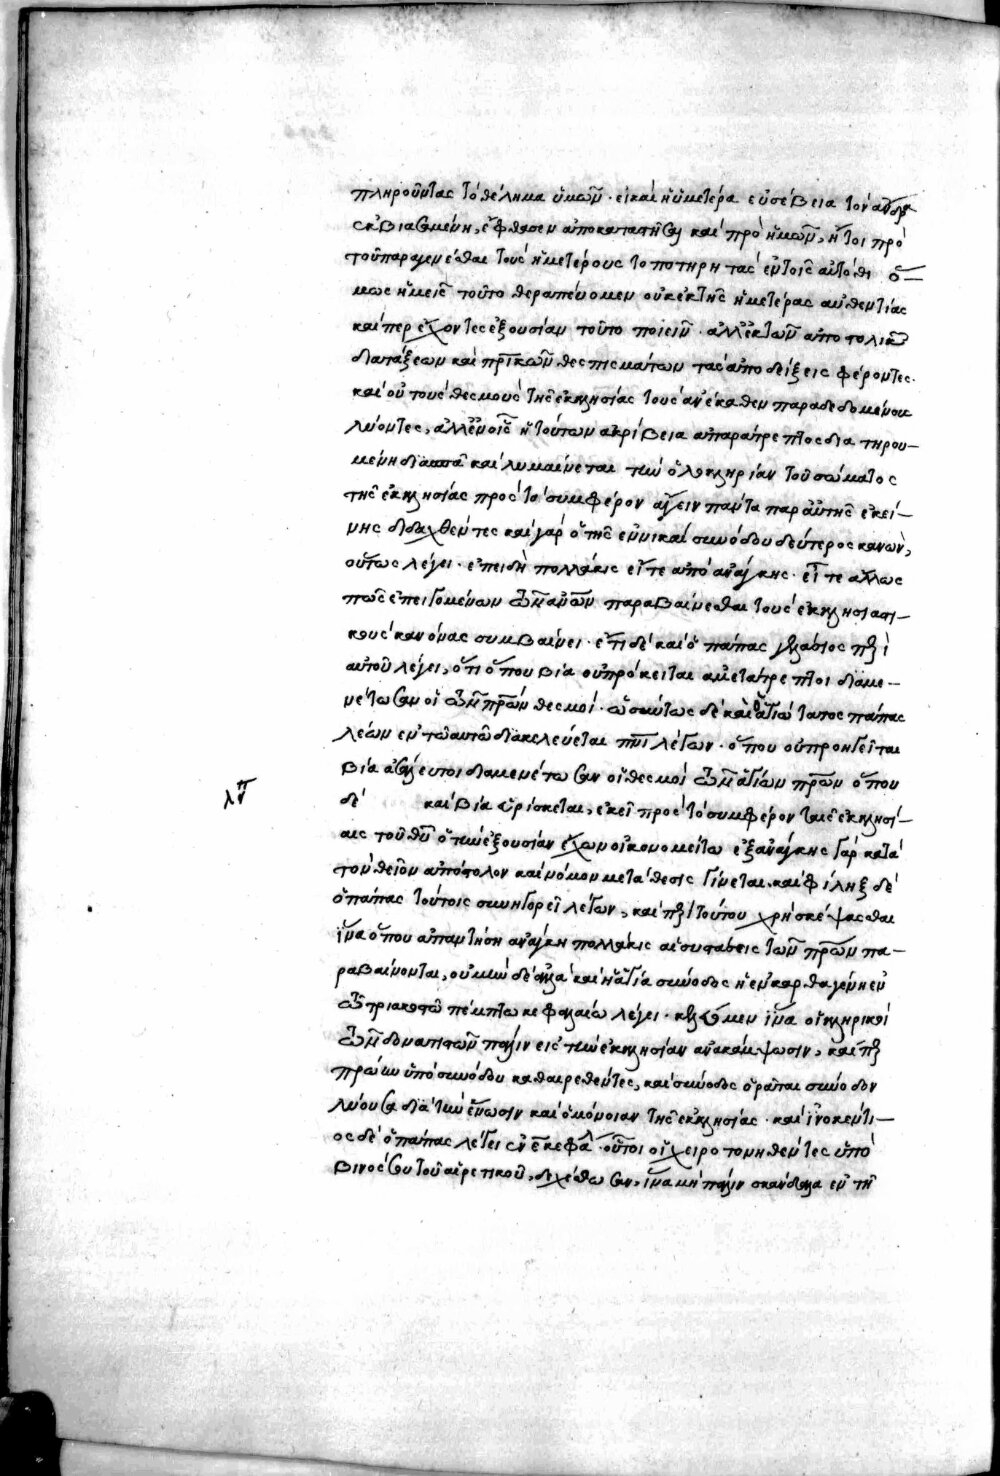 πληροῦντας τὸ θέλημα ὑμῶν· εἰ καὶ ἡ ὑμετέρα εὐσέβεια τὸν ἄνδρα
ἐκβιασαμένη, ἔφθασεν ἀποκαταστῆσαι καὶ πρὸ ἡμῶν, ἤτοι πρὸ
τοῦ παραγενέσθαι τοὺς ἡμετέρους τοποτηρητὰς ἐν τοῖς αὐτόθι ὅ-
μως ἡμεῖς τοῦτο θεραπεύομεν οὐκ ἐκ τῆς ἡμετέρας αὐθεντίας
καίπερ ἔχοντες ἐξουσίαν τοῦτο ποιεῖν· ἀλλ' ἐκ τῶν ἀποστολικῶν
διατάξεων καὶ πρικῶν θεσπισμάτων τὰς ἀποδείξεις φέροντες·
καὶ οὐ τοὺς θεσμοὺς τῆς ἐκκλησίας τοὺς ἀνέκαθεν παραδεδομένους
λύοντες, ἀλλ' ἐν οἷς ἡ τούτων ἀκρίβεια ἀπαράτρεπτος διατηρου-
μένη καὶ λυμαίνεται τὴν ὁλοκληρίαν τοῦ σώματος
τῆς ἐκκλησίας πρὸς τὸ συμφέρον ἄγειν πάντα παρ' αὐτῆς ἐκεί-
νης διδαχθέντες καὶ γὰρ ὁ τῆς ἐν νικαίᾳ συνόδου δεύτερος κανὼν,
οὕτως λέγει· ἐπειδὴ πολλάκις εἴτε ἀπὸ ἀνάγκης· εἴτε ἄλλως
πῶς ἐπειγομένων τῶν ἀνῶν παραβαίνεσθαι τοὺς ἐκκλησιαστι-
κοὺς κανόνας συμβαίνει· ἔτι δὲ καὶ ὁ πάπας γελάσιος περὶ
αὐτοῦ λέγει, ὅτι ὅπου βία οὐ πρόκειται ἀμετάτρεπτοι διαμε-
νέτωσαν οἱ τῶν πρῶν θεσμοί· ὡσαύτως δὲ καὶ ὁ ἁγιώτατος πάπας
λέων ἐν τῷ αὐτῷ διακελεύεται λέγων· ὅπου οὐ προηγεῖται
βία ἀσάλευτοι διαμενέτωσαν οἱ θεσμοὶ τῶν ἁγίων πρῶν ὅπου
δὲ καὶ βία εὑρίσκεται, ἐκεῖ πρὸς τὸ συμφέρον ταῖς ἐκκλησί-
αις τοῦ θῦ ὁ τὴν ἐξουσίαν ἔχων οἰκονομείτω ἐξ ἀνάγκης γὰρ κατὰ
τὸν θεῖον ἀπόστολον καὶ νόμου μετάθεσις γίνεται. καὶ φίληξ δὲ
ὁ πάπας τούτοις συνηγορεῖ λέγων, καὶ περὶ τούτου χρὴ σκέψασθαι
ἵνα ὅπου ἀπαντήσῃ ἀνάγκη πολλάκις αἱ συστάσεις τῶν πρῶν πα-
ραβαίνονται, οὐ μὴν δὲ ἀλλὰ καὶ ἡ ἁγία σύνοδος ἡ ἐν καρθαγένῃ ἐν
τῷ τριακοστῷ πέμπτῳ κεφαλαίῳ λέγει· κελεύομεν ἵνα οἱ κληρικοὶ
τῶν δονατιστῶν πάλιν εἰς τὴν ἐκκλησίαν ἀνακάμψωσιν, καὶ περὶ
πρώτων ὑπὸ συνόδου καθαιρεθέντες, καὶ σύνοδος ὁρᾶται σύνοδον
λύουσα διὰ τὴν ἕνωσιν καὶ ὁμόνοιαν τῆς ἐκκλησίας· καὶ ἰνοκέντι-
ος δὲ ὁ πάπας λέγει ἐν κεφαλ· οὗτοι οἱ χειροτονηθέντες ὑπὸ
βινόσου τοῦ αἱρετικοῦ, δεχέσθωσαν, ἵνα μὴ πάλιν σκάνδαλα ἐν τῇ